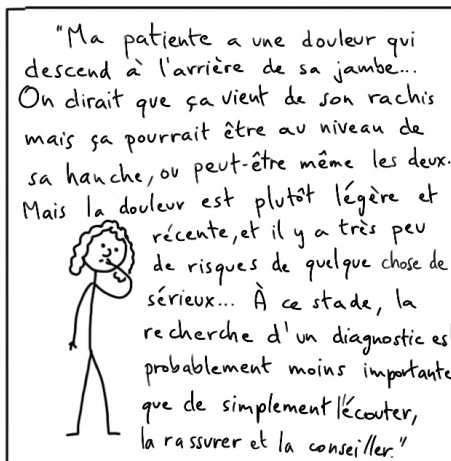 "Ma patiente a une douleur qui
descend à l'arrière de sa jambe...
On dirait que ça vient de son rachis
mais ça pourrait être au niveau de
sa hanche, ou peut-être même les deux.
Mais la douleur est plutôt légère et
récente, et il y a très peu
de risques de quelque chose de
sérieux... À ce stade, la
recherche d'un diagnostic es
probablement moins importante
que de simplement l'écouter,
la rassurer et la conseiller."